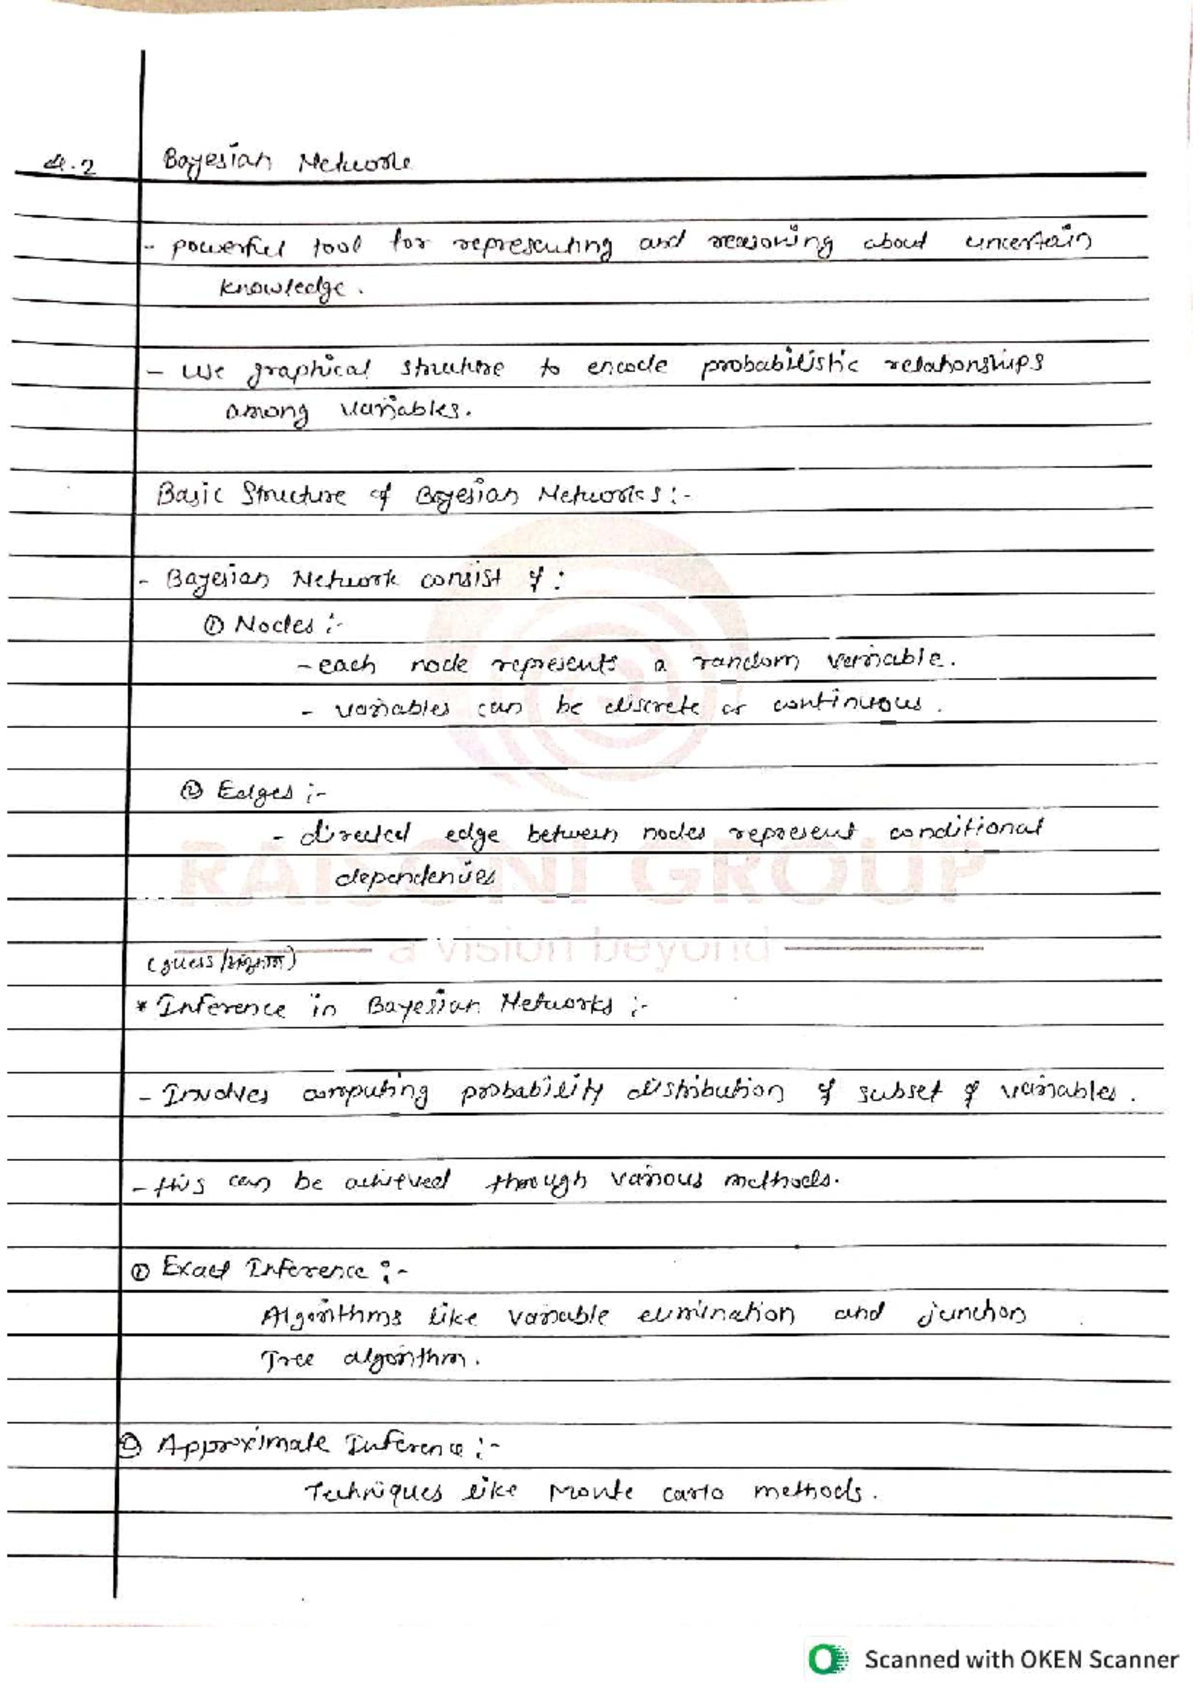 4.2 Bayesian Network
- powerful tool for representing and reasoning about uncertain
knowledge.
- use graphical structure to encode probabilistic relationships
among variables.
Basic Structure of Bayesian Networks :-
- Bayesian Network consist of :
① Nodes :-
- each node represents a random variable.
- variables can be discrete or continuous.
② Edges :-
- directed edge between nodes represent conditional
dependencies
RAISONI GROUP
a vision beyond
(guess/अनुमान)
* Inference in Bayesian Networks :-
- Involves computing probability distribution of subset of variables.
- this can be achieved through various methods.
① Exact Inference :-
Algorithms like variable elimination and junction
Tree algorithm.
② Approximate Inference :-
Techniques like Monte carlo methods.
Scanned with OKEN Scanner